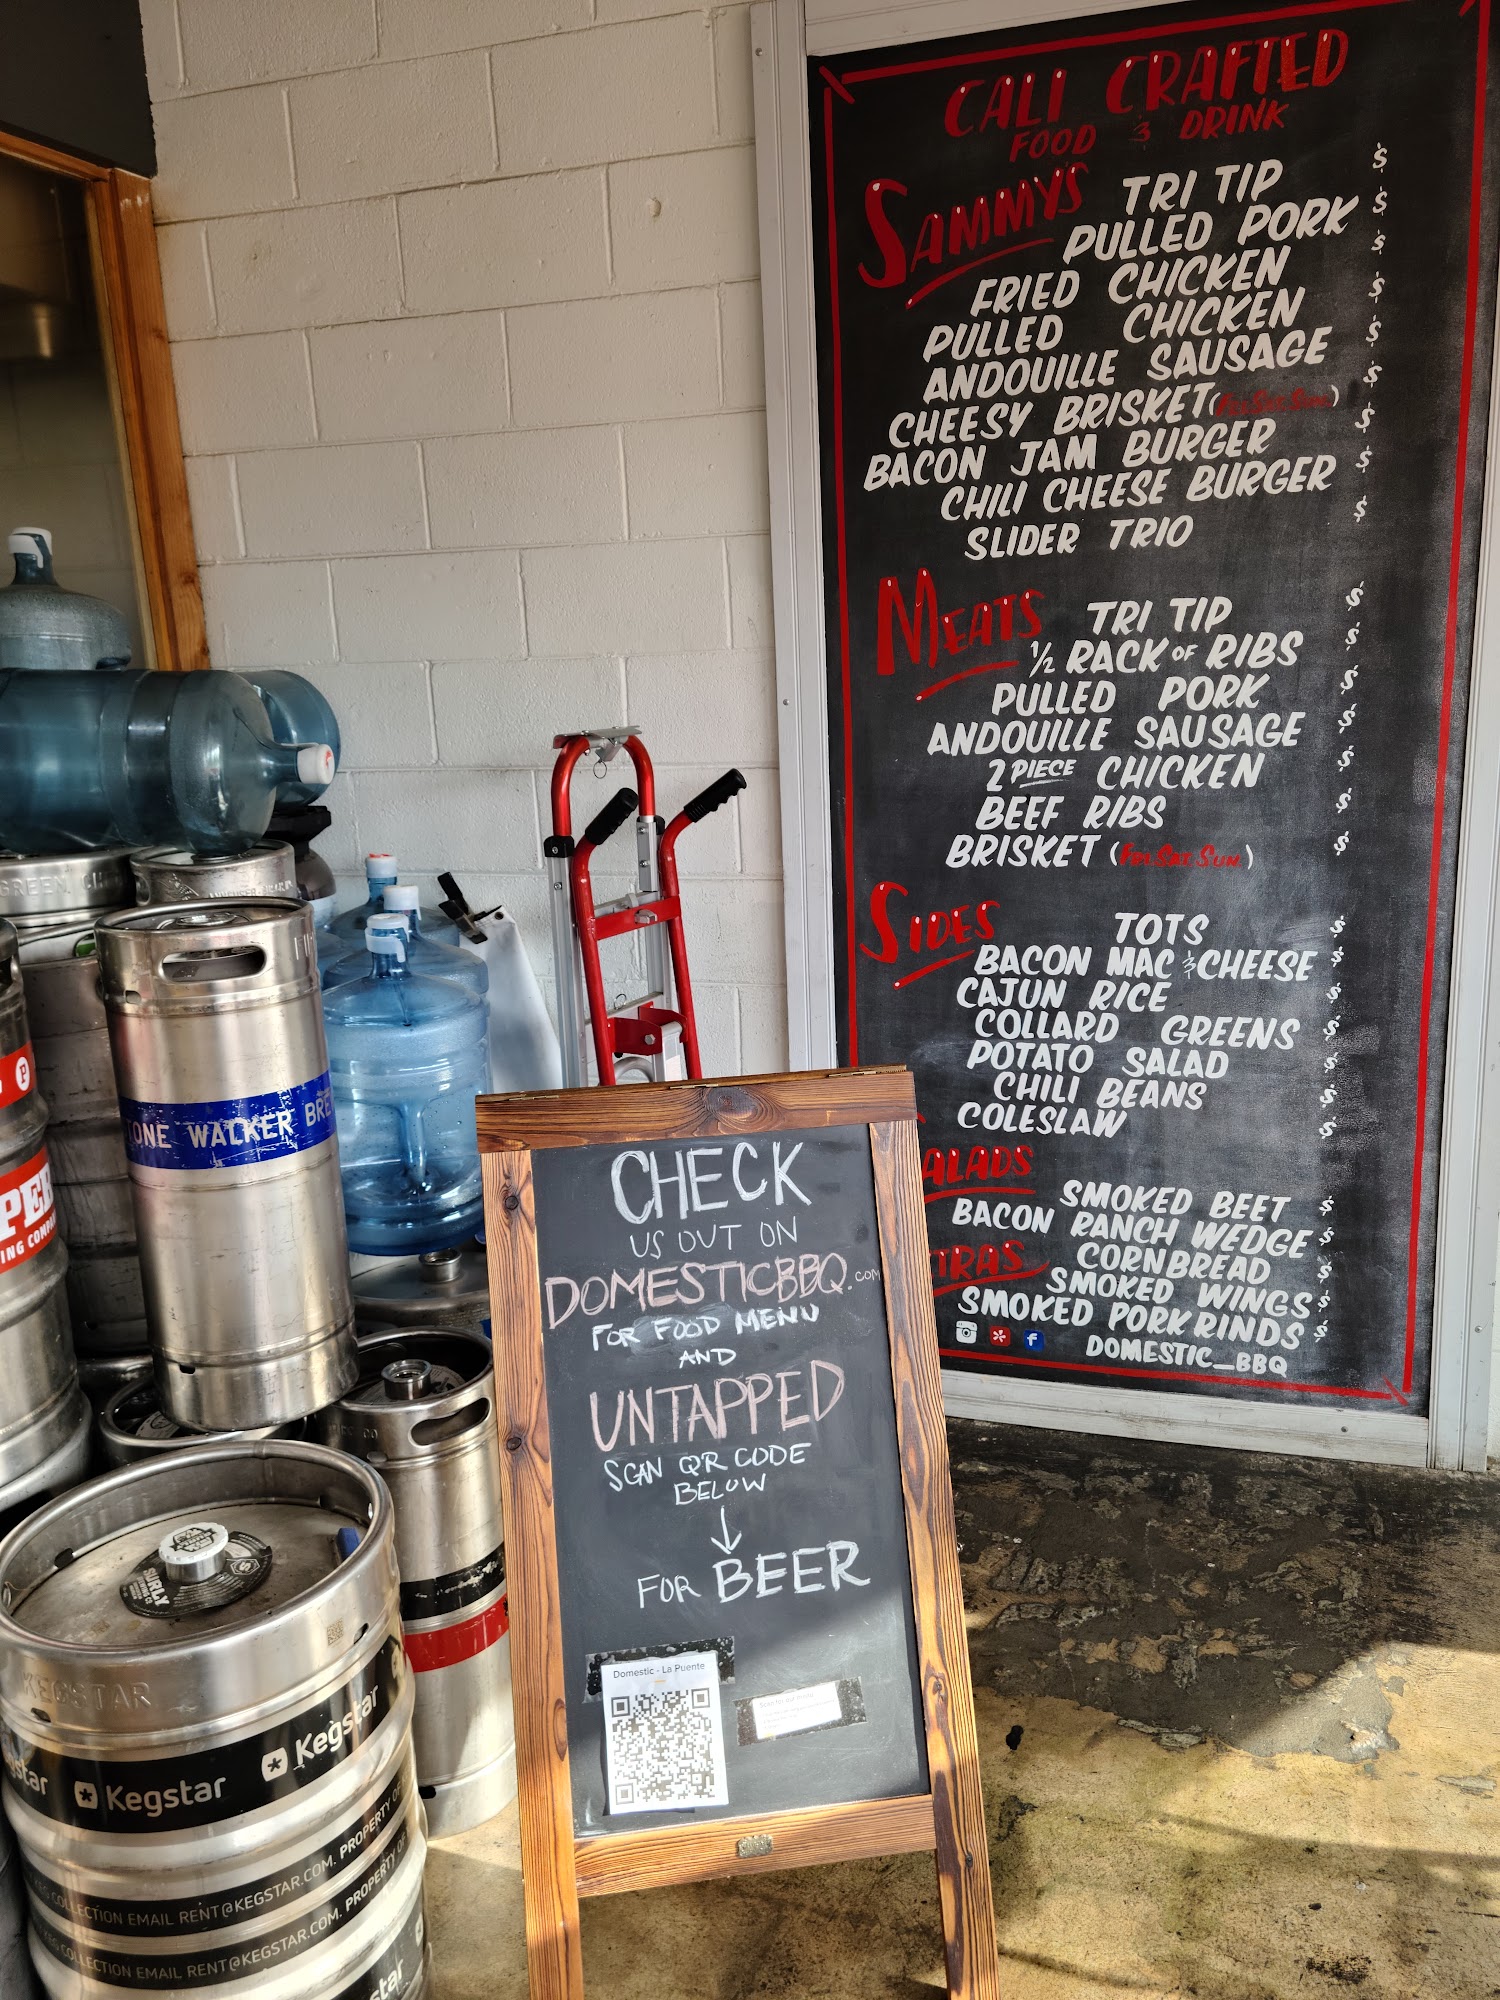 CALI CRAFTED
FOOD & DRINK
SAMMYS
TRI TIP $
PULLED PORK $
FRIED CHICKEN $
PULLED CHICKEN $
ANDOUILLE SAUSAGE $
CHEESY BRISKET (FRI SAT SUN) $
BACON JAM BURGER $
CHILI CHEESE BURGER $
SLIDER TRIO $
MEATS
TRI TIP $
1/2 RACK OF RIBS $
PULLED PORK $
ANDOUILLE SAUSAGE $
2 PIECE CHICKEN $
BEEF RIBS $
BRISKET (FRI SAT SUN) $
SIDES
TOTS $
BACON MAC & CHEESE $
CAJUN RICE $
COLLARD GREENS $
POTATO SALAD $
CHILI BEANS $
COLESLAW $
ALADS
SMOKED BEET $
BACON RANCH WEDGE $
TRAS
CORNBREAD $
SMOKED WINGS $
SMOKED PORK RINDS $
f
DOMESTIC_BBQ
CHECK
US OUT ON
DOMESTICBBQ.COM
FOR FOOD MENU
AND
UNTAPPED
SCAN QR CODE
BELOW
FOR BEER
Domestic - La Puente
TONE WALKER BRE
P
PER
ING COMP
GREEN
SURLY
KEGSTAR
star
Kegstar
Kegstar
COLLECTION EMAIL RENT@KEGSTAR.COM. PROPERTY OF
COLLECTION EMAIL RENT@KEGSTAR.COM. PROPERTY OF
star